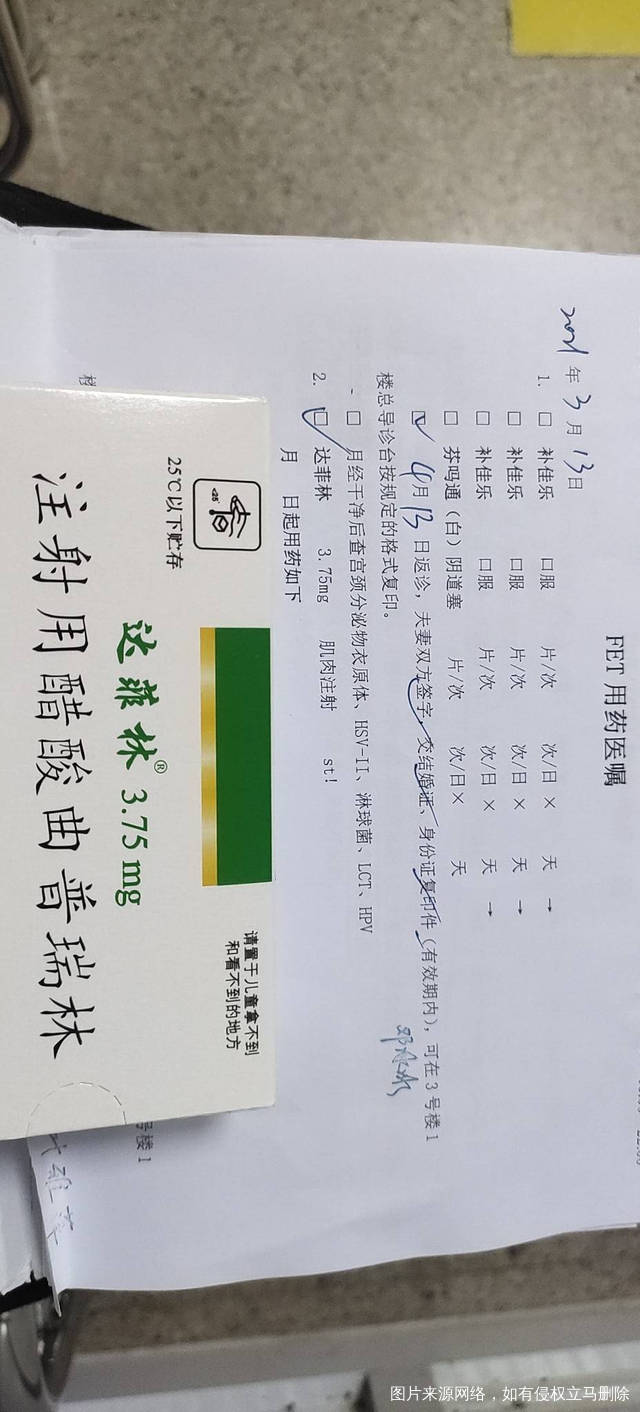 FET 用药医嘱
2021 年 3 月 13 日
1. □ 补佳乐 口服 片/次 次/日× 天→
□ 补佳乐 口服 片/次 次/日× 天→
□ 补佳乐 口服 片/次 次/日× 天→
□ 芬吗通（白）阴道塞 片/次 次/日× 天
☑ 4月 13 日返诊，夫妻双方签字，交结婚证、身份证复印件（有效期内），可在 3 号楼 1
楼总导诊台按规定的格式复印。
□ 月经干净后查宫颈分泌物衣原体、HSV-II、淋球菌、LCT、HPV
2. ☑ 达菲林 3.75mg 肌肉注射 st!
月 日起用药如下
号楼 1
楼
请置于儿童拿不到
和看不到的地方
<25°
25℃以下贮存
达菲林® 3.75 mg
注射用醋酸曲普瑞林
图片来源网络，如有侵权立马删除